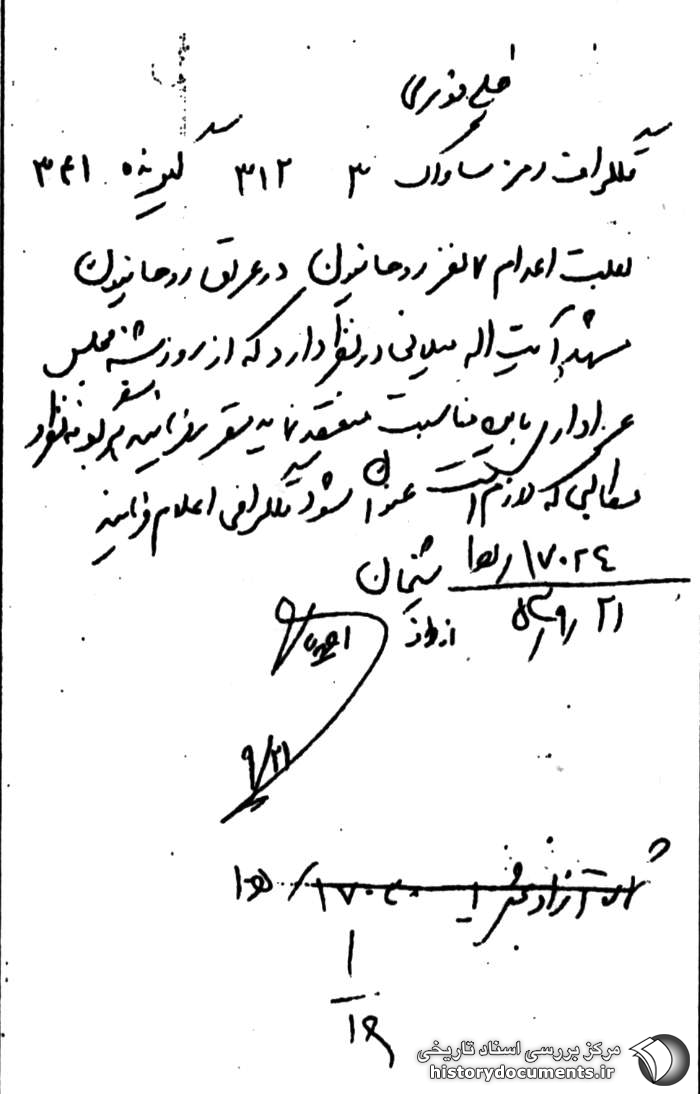 خیلی فوری
تلگراف رمز ساواک ۳ ۳۱۲ گیرنده ۳۴۱
بعلت اعدام ۷ نفر روحانیون در عراق روحانیون
مشهد آیت اله میلانی در نظر دارد که از روز شنبه مجلس
عزاداری باین مناسبت منعقد نماید مقرر فرمائید هرگونه نظر و
مطالبی که لازم است عنوان شود تلگرافی اعلام فرمایند
۱۷۰۲۴/ه‍ ۱ شیخان
۲۱/۹/
۹/۲۱
۱۷۰۲۰/ه‍ ۱
۱
مرکز بررسی اسناد تاریخی
historydocuments.ir